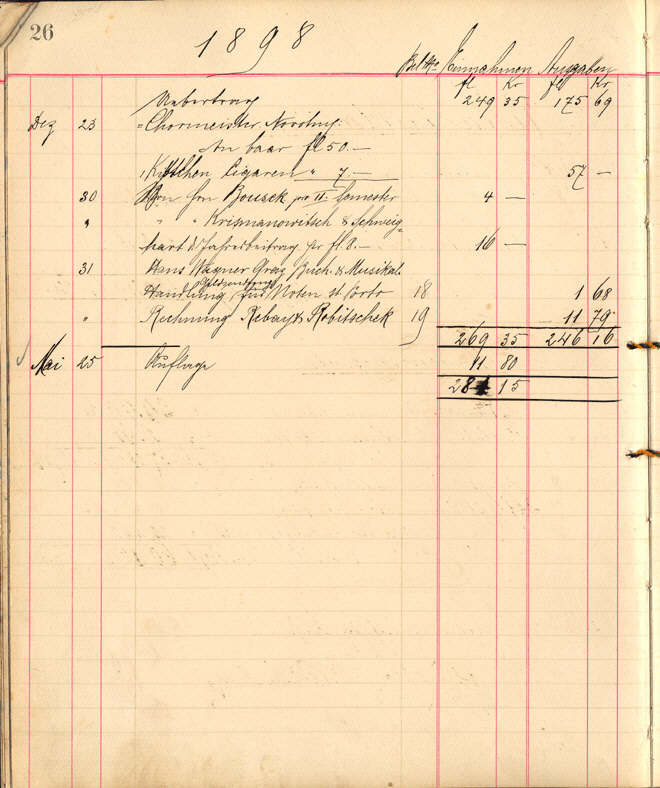 26
1898
Bel. No Einnahmen Ausgaben
fl Kr fl Kr
Uebertrag 249 35 175 69
Dez 23 Chormeister Novotny:
An baar fl 50.—
Kistchen Cigaren " 7.— 57 —
30 Von Hrn Bousek pro II. Semester 4 —
" " " Krismanowitsch & Schweig-
hart d. Jahresbeitrag pr fl 8.— 16 —
31 Hans Wagner Graz Buch- & Musikal.
Geldsendung
Handlung für Noten st Porto 18 1 68
" Rechnung Rebay & Robitschek 19 11 79
269 35 246 16
Mai 25 Auflage 11 80
281 15